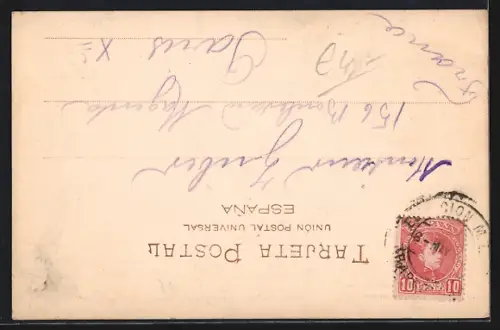 TARJETA POSTAL
UNIÓN POSTAL UNIVERSAL
ESPAÑA
Monsieur
156 Boulevard Magenta
Paris Xe
France
10 10